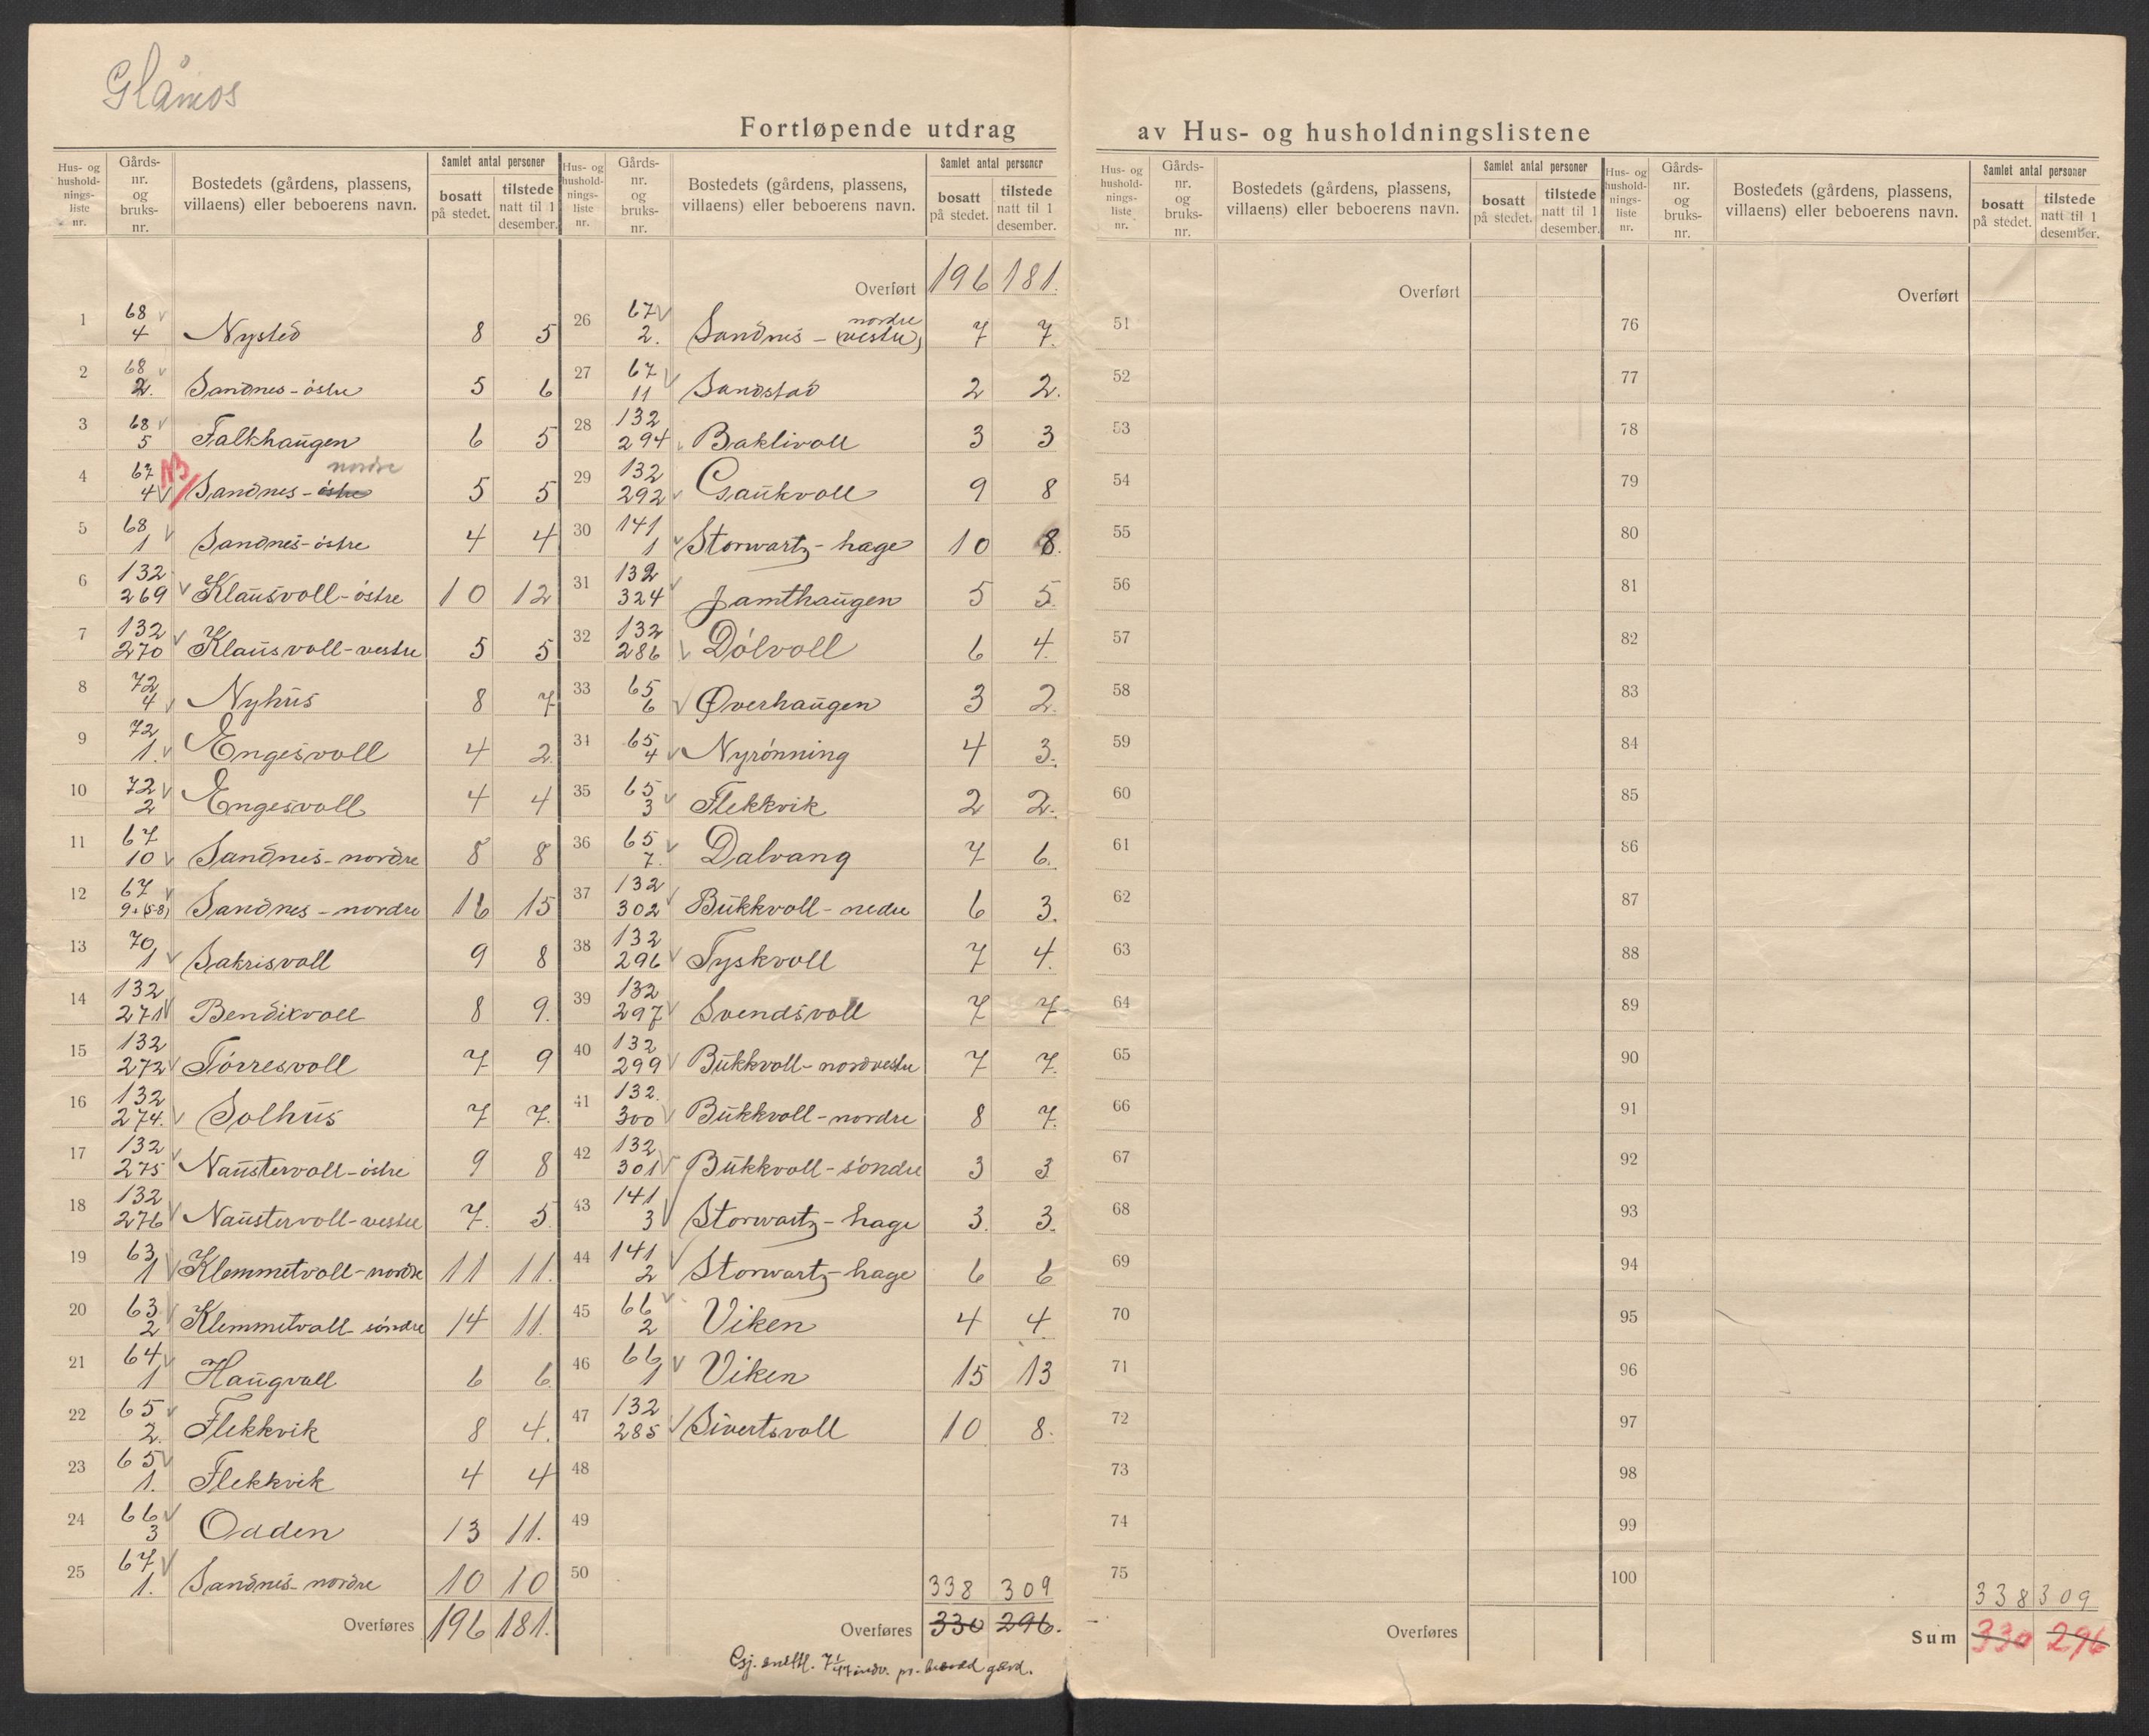 Glåmos
Fortløpende utdrag av Hus- og husholdningslistene
Hus- og husholdnings-liste nr. | Gårds-nr. og bruks-nr. | Bostedets (gårdens, plassens, villaens) eller beboerens navn. | Samlet antal personer bosatt på stedet. | tilstede natt til 1 desember.
1 68 4 Nysted 8 5
2 68 2. Sandnes - östre 5 6
3 68 5 Falkhaugen 6 5
4 67 4 NB Sandnes - östre nordre 5 5
5 68 1 Sandnes - östre 4 4
6 132 269 Klausvoll - östre 10 12
7 132 270 Klausvoll - vestre 5 5
8 72 4 Nyhus 8 7
9 72 1. Engesvoll 4 2
10 72 2 Engesvoll 4 4
11 67 10 Sandnes - nordre 8 8
12 67 9+(5-8) Sandnes - nordre 16 15
13 70 1 Sakrisvoll 9 8
14 132 271 Bendixvoll 8 9.
15 132 272 Törresvoll 7 9
16 132 274. Solhus 7 7.
17 132 275 Naustervoll - östre 9 8
18 132 276 Naustervoll - vestre 7. 5
19 63 1 Klemmetvoll - nordre 11 11.
20 63 2 Klemmetvoll söndre 14 11.
21 64 1 Haugvoll 6 6
22 65 2. Flekkvik 8 4.
23 65 1. Flekkvik 4 4
24 66 3 Odden 13 11.
25 67 1. Sandnes - nordre 10 10
Overføres 196 181.
Hus- og husholdnings-liste nr. | Gårds-nr. og bruks-nr. | Bostedets (gårdens, plassens, villaens) eller beboerens navn. | Samlet antal personer bosatt på stedet. | tilstede natt til 1 desember.
Overført 196 181.
26 67 2. Sandnes - nordre (vestre) 7 7.
27 67 11 Sandstad 2 2.
28 132 294 Baklivoll 3 3
29 132 292 Gaukvoll 9 8
30 141 1 Storwartz - hage 10 8.
31 132 324 Jamthaugen 5 5.
32 132 286 Dölvoll 6 4.
33 65 6 Øverhaugen 3 2
34 65 4 Nyrönning 4 3.
35 65 3 Flekkvik 2 2.
36 65 7. Dalvang 7 6.
37 132 302 Bukkvoll - nedre 6 3.
38 132 296 Tyskvoll 7 4.
39 132 297 Svendsvoll 7 7
40 132 299 Bukkvoll - nordvestre 7 7.
41 132. 300 Bukkvoll - nordre 8 7.
42 132 301 Bukkvoll - söndre 3 3
43 141 3 Storwartz - hage 3. 3.
44 141 2 Storwartz - hage 6 6
45 66 2 Viken 4 4
46 66 1 Viken 15 13
47 132 285 Sivertsvoll 10 8.
48
49
50
338 309
Overføres 330 296.
Gj. snittl. 7 1/47 indv. pr. bebodd gård.
Hus- og husholdnings-liste nr. | Gårds-nr. og bruks-nr. | Bostedets (gårdens, plassens, villaens) eller beboerens navn. | Samlet antal personer bosatt på stedet. | tilstede natt til 1 desember.
Overført
51
52
53
54
55
56
57
58
59
60
61
62
63
64
65
66
67
68
69
70
71
72
73
74
75
Overføres
Hus- og husholdnings-liste nr. | Gårds-nr. og bruks-nr. | Bostedets (gårdens, plassens, villaens) eller beboerens navn. | Samlet antal personer bosatt på stedet. | tilstede natt til 1 desember.
Overført
76
77
78
79
80
81
82
83
84
85
86
87
88
89
90
91
92
93
94
95
96
97
98
99
100
338 309
Sum 330 296